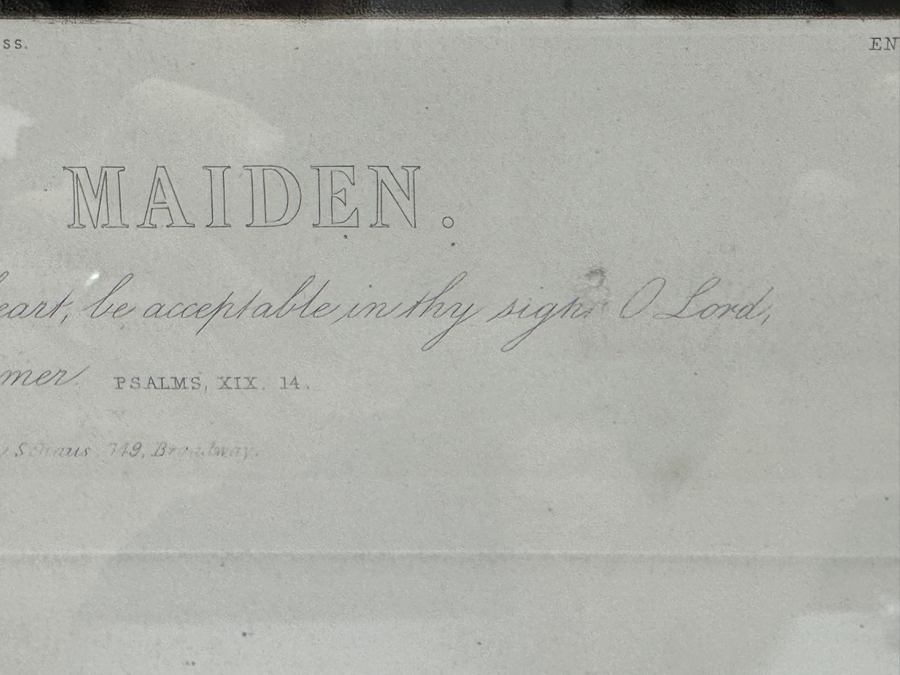 ss. EN
MAIDEN.
eart, be acceptable in thy sight O Lord,
mer. PSALMS, XIX. 14.
Schaus 749, Broadway.